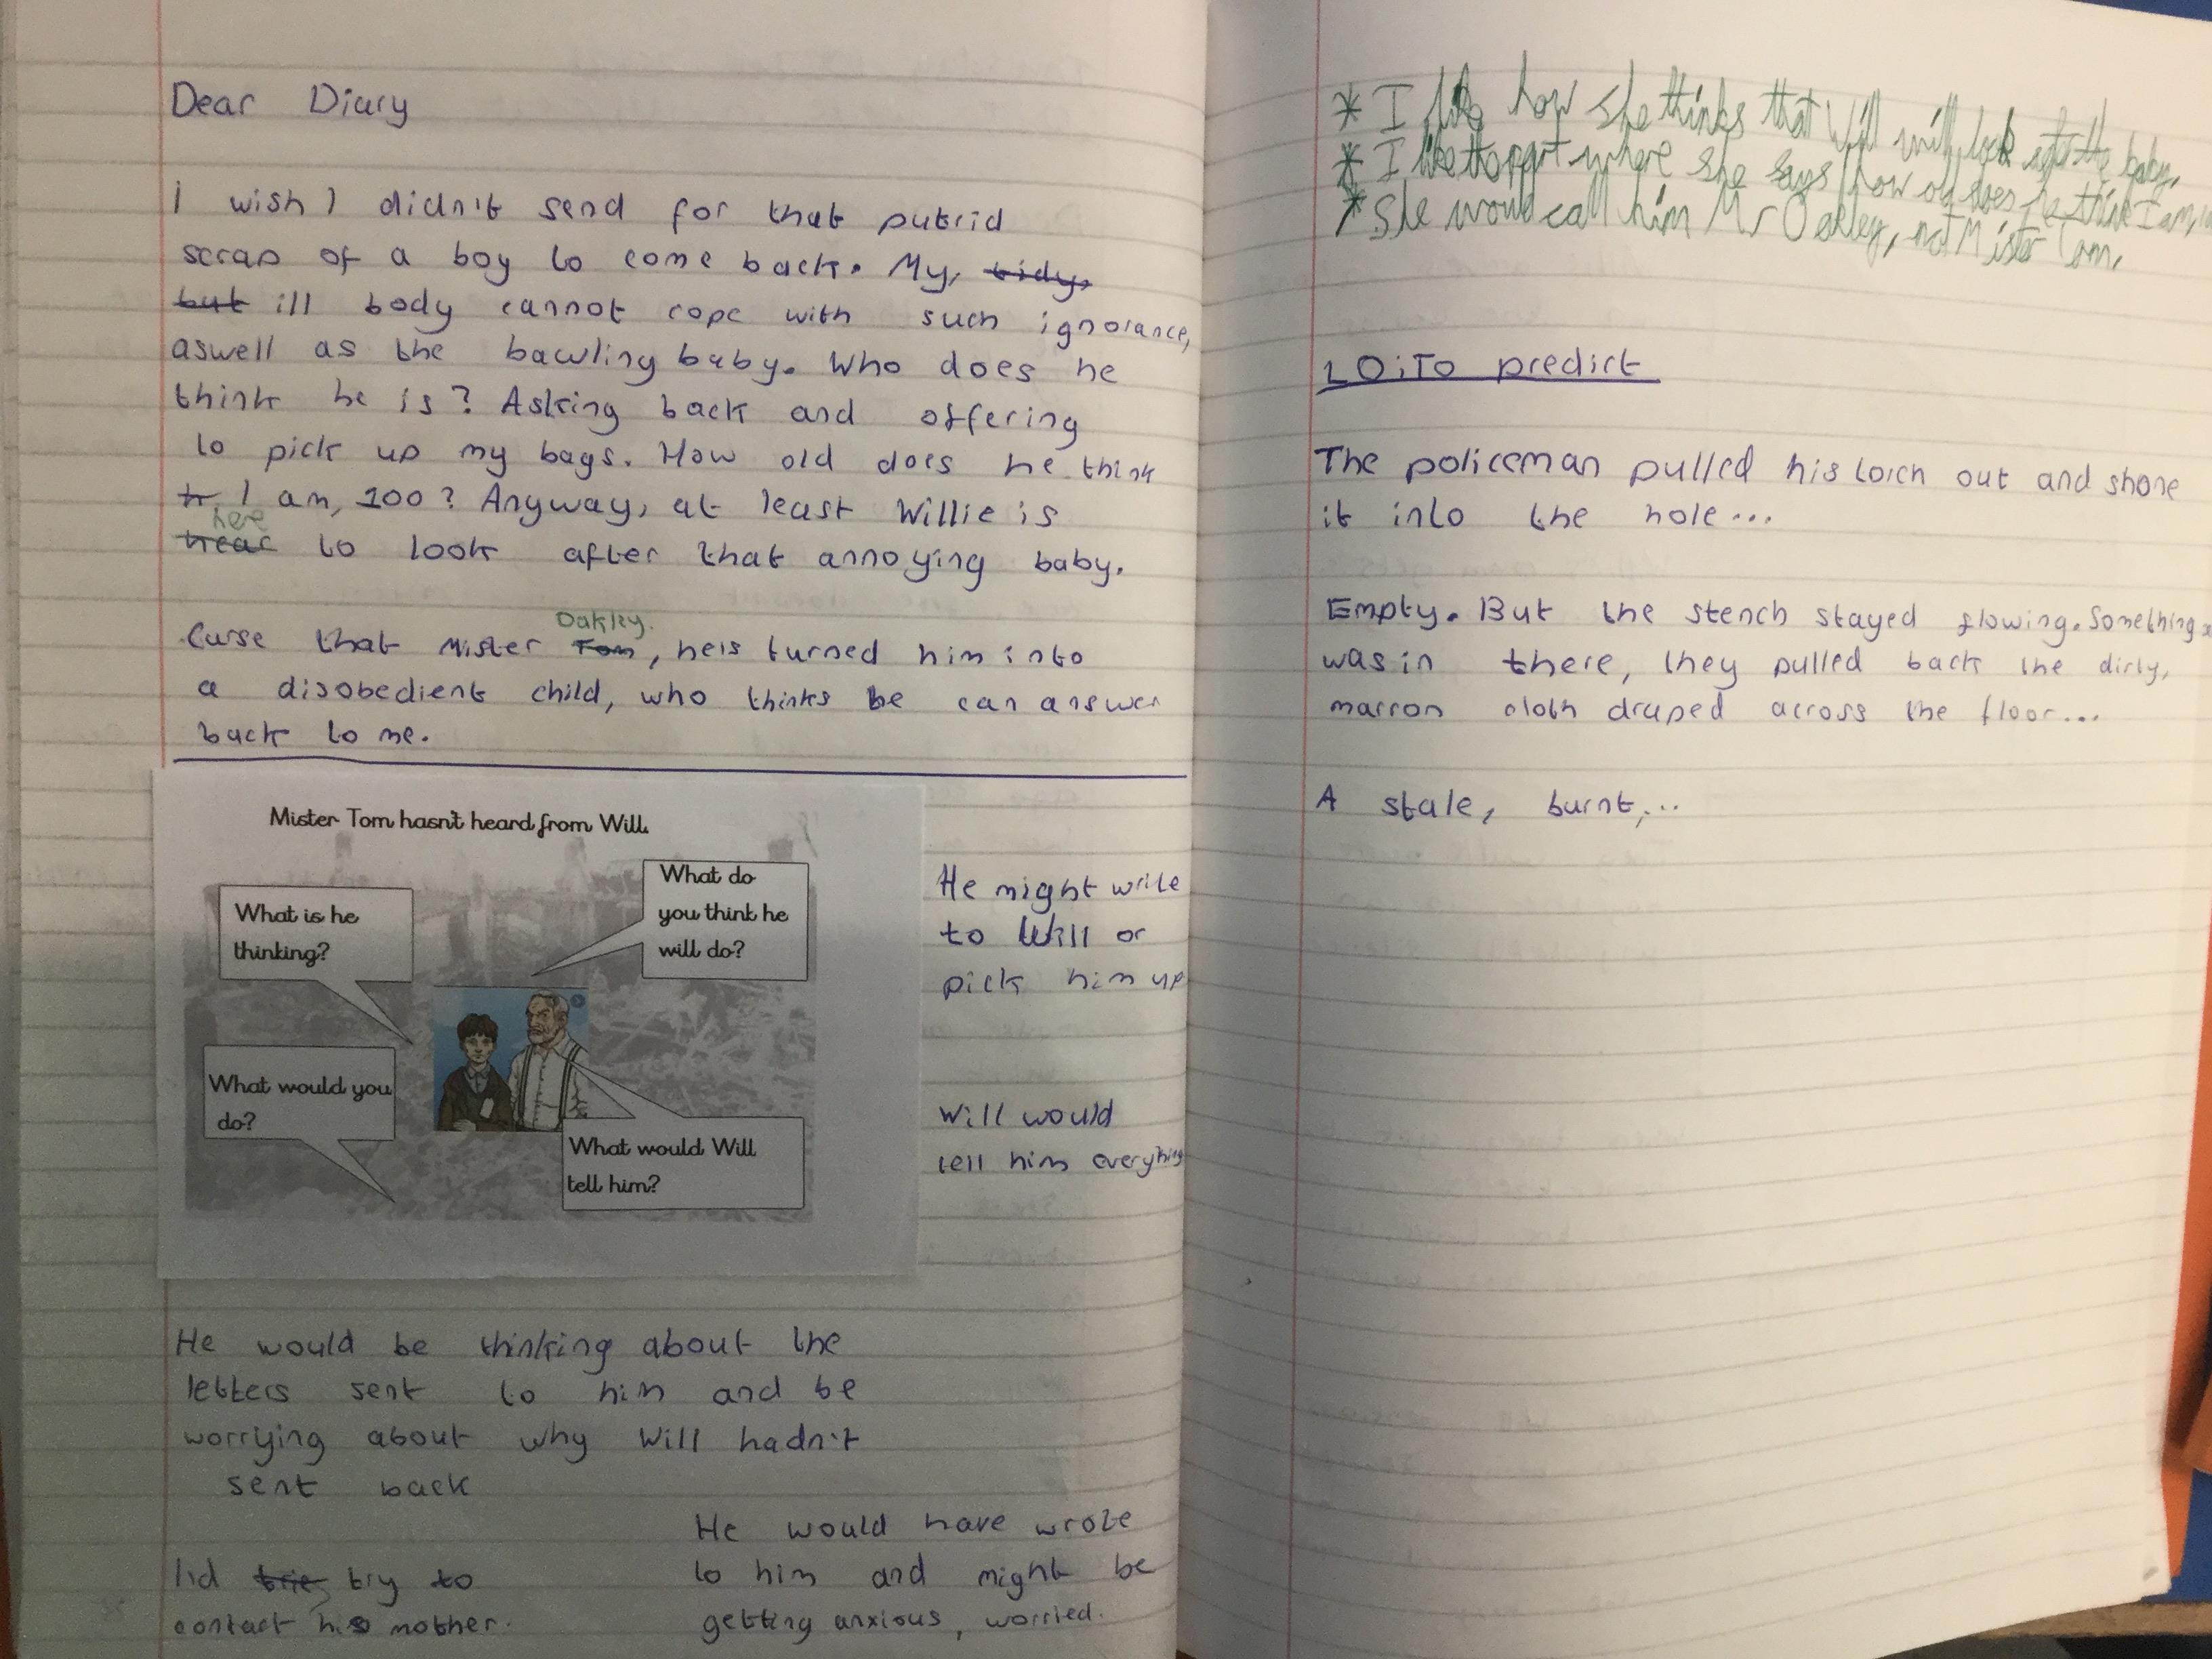 Dear Diary
I wish I didn't send for that putrid
scrap of a boy to come back. My, tidy,
but ill body cannot cope with such ignorance,
aswell as the bawling baby. Who does he
think he is? Asking back and offering
to pick up my bags. How old does he think
I am, 100? Anyway, at least Willie is
here
hear to look after that annoying baby.
Oakley.
Curse that Mister Tom, he's turned him into
a disobedient child, who thinks he can answer
back to me.
Mister Tom hasn't heard from Will.
What is he
thinking?
What do
you think he
will do?
What would you
do?
What would Will
tell him?
He might write
to Will or
pick him up
Will would
tell him everything
He would be thinking about the
letters sent to him and be
worrying about why Will hadn't
sent back
I'd tries try to
contact his mother.
He would have wrote
to him and might be
getting anxious, worried.
* I like how she thinks that Will will look after the baby.
* I like the part where she says how old does he think I am,
* She would call him Mr Oakley, not Mister Tom.
LO: To predict
The policeman pulled his torch out and shone
it into the hole...
Empty. But the stench stayed flowing. Something
was in there, they pulled back the dirty,
marron cloth draped across the floor...
A stale, burnt,...